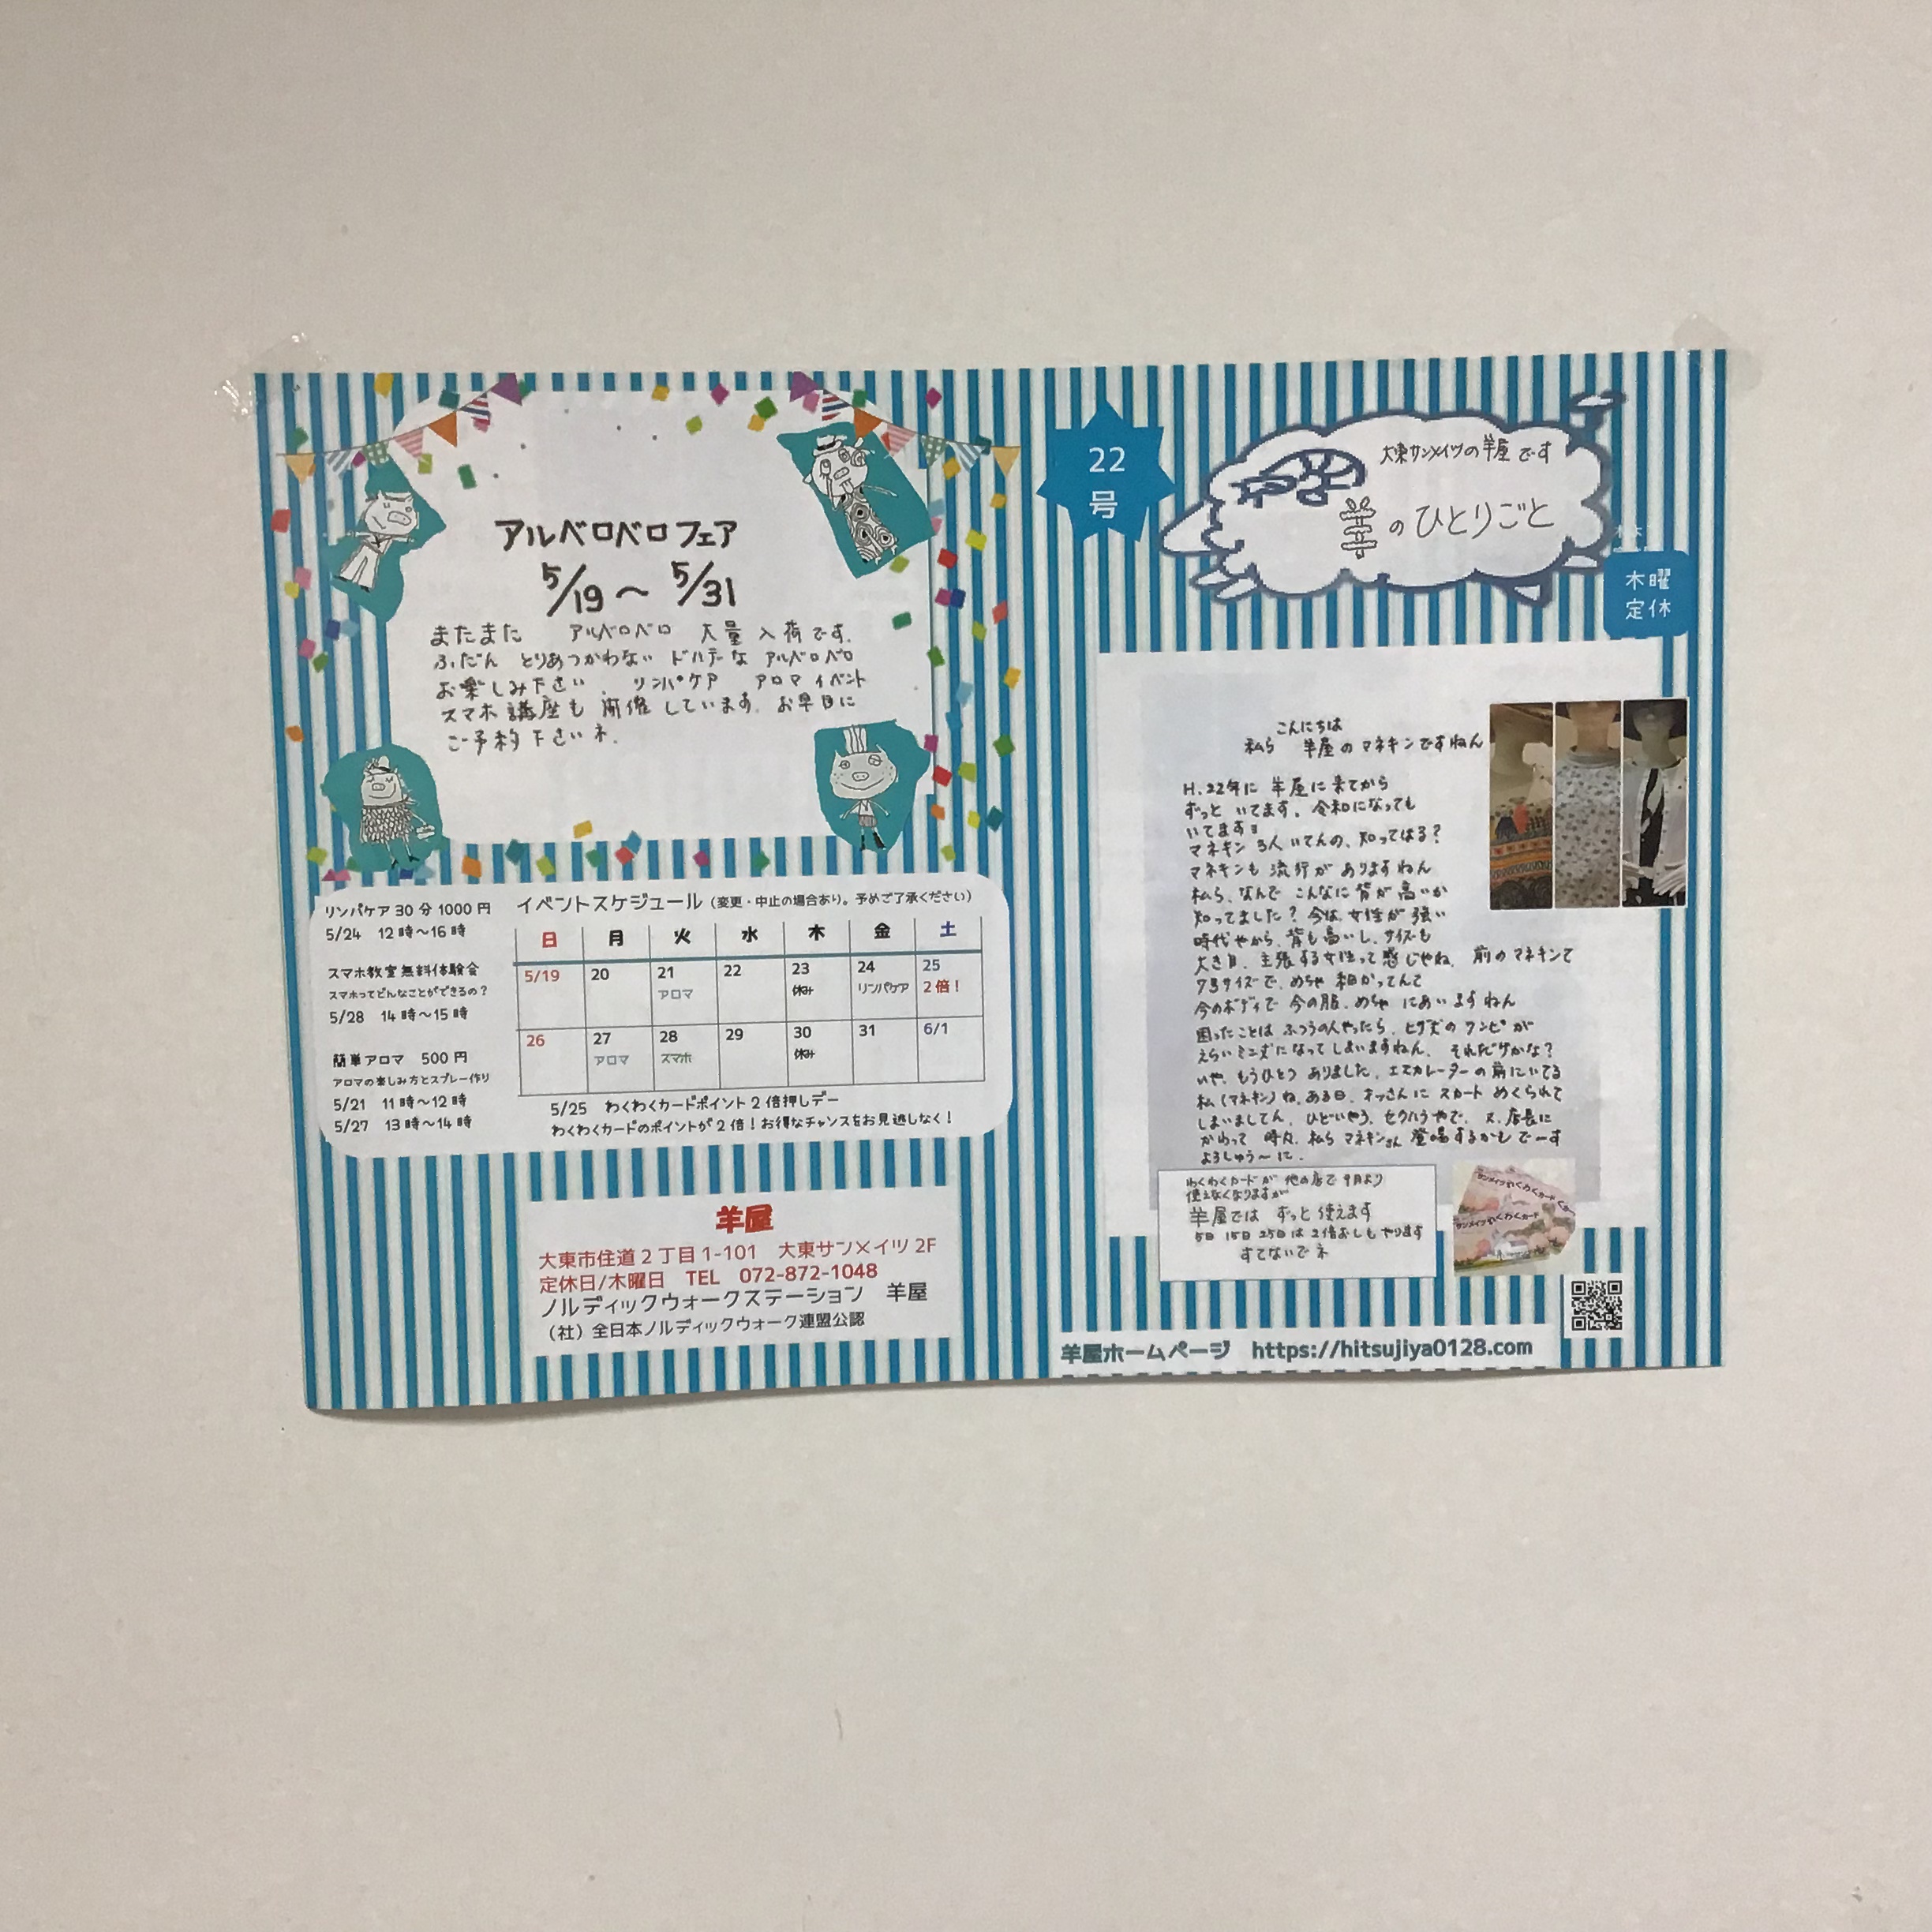 アルベロベロフェア
5/19～5/31
またまた アルベロベロ 大量入荷です。
ふだん とりあつかわない ドルチェな アルベロベロ
お楽しみ下さい。 リンパケア アロマイベント
スマホ講座も 開催しています。お早目に
ご予約下さいネ。
リンパケア 30 分 1000 円
5/24 12 時～16 時
スマホ教室無料体験会
スマホってどんなことができるの？
5/28 14 時～15 時
簡単アロマ 500 円
アロマの楽しみ方とスプレー作り
5/21 11 時～12 時
5/27 13 時～14 時
イベントスケジュール（変更・中止の場合あり。予めご了承ください）
日 月 火 水 木 金 土
5/19 20 21 22 23 24 25
アロマ 休み リンパケア 2 倍！
26 27 28 29 30 31 6/1
アロマ スマホ 休み
5/25 わくわくカードポイント 2 倍押しデー
わくわくカードのポイントが 2 倍！お得なチャンスをお見逃しなく！
羊屋
大東市住道 2 丁目 1-101 大東サンメイツ 2F
定休日/木曜日 TEL 072-872-1048
ノルディックウォークステーション 羊屋
（社）全日本ノルディックウォーク連盟公認
22
号
大東サンメイツの羊屋です
羊のひとりごと
木曜
定休
こんにちは
私ら 羊屋のマネキンですねん
H.22年に 羊屋に来てから
ずっと いてます。令和になっても
いてますヨ
マネキン3人いてんの、知ってはる？
マネキンも 流行が ありますねん
私ら、なんで こんなに背が高いか
知ってました？今は、女性が強い
時代やから、背も高いし、サイズも
大き目、主張する女性って感じやね。前のマネキンて
7号サイズで、めちゃ 細かってんて
今のボディで 今の服、めちゃ にあいますねん
困ったことは ふつうの人やったら、ヒザ丈の ワンピが
えらいミニ丈になってしまいますねん。それだけかな？
いや、もうひとつ ありました。エスカレーターの前にいてる
私（マネキン）ね、ある日、オッさんに スカート めくられて
しまいましてん。ひどいやろ、セクハラやで。又、店長に
かわって 時々、私ら マネキンさん 登場するかも でーす
よろしゅう～に。
わくわくカードが 他の店で 9月より
使えなくなりますが
羊屋では ずっと使えます
5日 15日 25日は 2倍おしもやります
すてないでネ
サンメイツわくわくカード
サンメイツわくわくカード
羊屋ホームページ https://hitsujiya0128.com